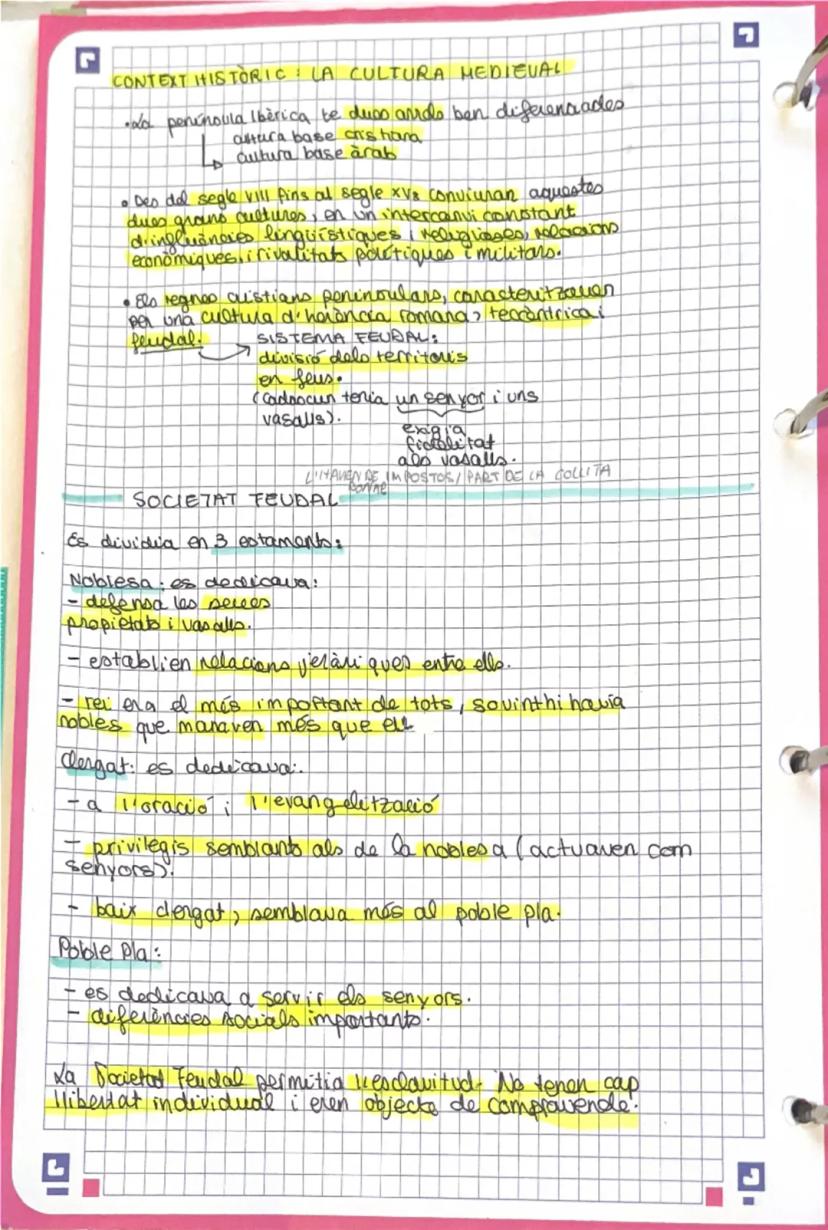 CONTEXT HISTÒRIC: LA CULTURA MEDIEVAL
• La península Ibèrica te dues ben diferenciades
cultura base cristiana
cultura base àrab
• Des del segle VIII fins al segle XV conviuran aquestes
dues grans cultures, en un intercanvi constant
d'influències lingüístiques i religioses, relacions
econòmiques i rivalitats polítiques i militars.
• Els regnes cristians peninsulars, caracteritzaven
per una cultura d'herència romana, teocèntrica i
feudal.
SISTEMA FEUDAL:
divisió dels territoris
en feus.
(cadascun tenia un senyor i uns
vasalls).
exigia
fidelitat
als vasalls.
IMPOSTOS / PART DE LA COLLITA
SOCIETAT FEUDAL
Es dividia en 3 estaments:
Noblesa: es dedicava:
- defensa les seues
propietats i vasalls.
- establien relacions jeràriques entre ells.
- rei era el més important de tots, sovint hi havia
nobles que manaven més que ell
Clergat: es dedicava:.
- a l'oració i l'evangelització
- privilegis semblants als de la noblesa (actuaven com
senyors).
- baix clergat, semblava més al poble pla.
Poble Pla:
- es dedicava a servir els senyors.
- diferències socials importants.
La Societat Feudal permitia l'esclavitud. No tenen cap
llibertat individual i eren objecte de compravende.